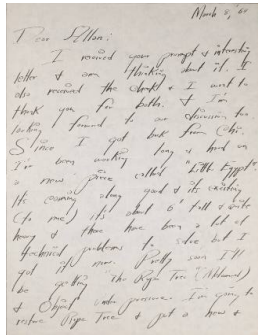 March 8, 60
Dear Ellen:
I received your prompt & interesting
letter & am thinking about it. I
also received the check & I want to
thank you for both. & I'm
looking forward to our discussion too
Since I got back from Chi.
I've been working long & hard on
a new piece called "Little Egypt".
Its coming along good & its exciting
(to me) it's about 6' tall & quite
heavy & there have been a lot of
technical problems to solve but I
got it now. Pretty soon I'll
be getting The Rope Tree
& Object under pressure. I'm going to
restore Rope Tree & put a new &